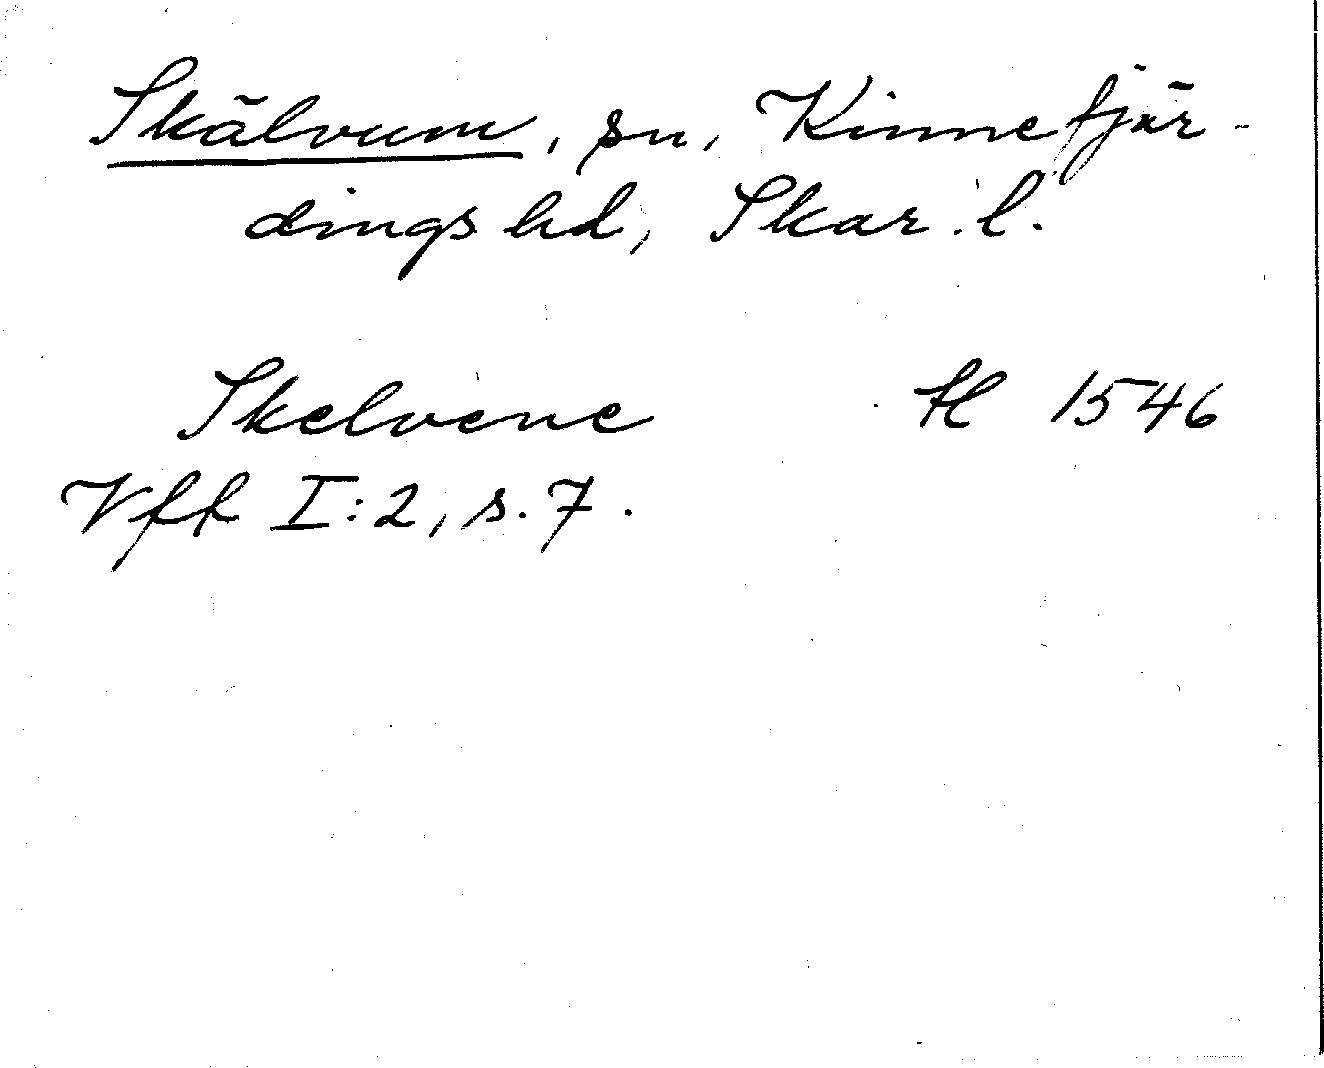 Skälvum, sn, Kinnefjär-
dings hd, Skar. l.
Skelvene H 1546
Vff I:2, s. 7.